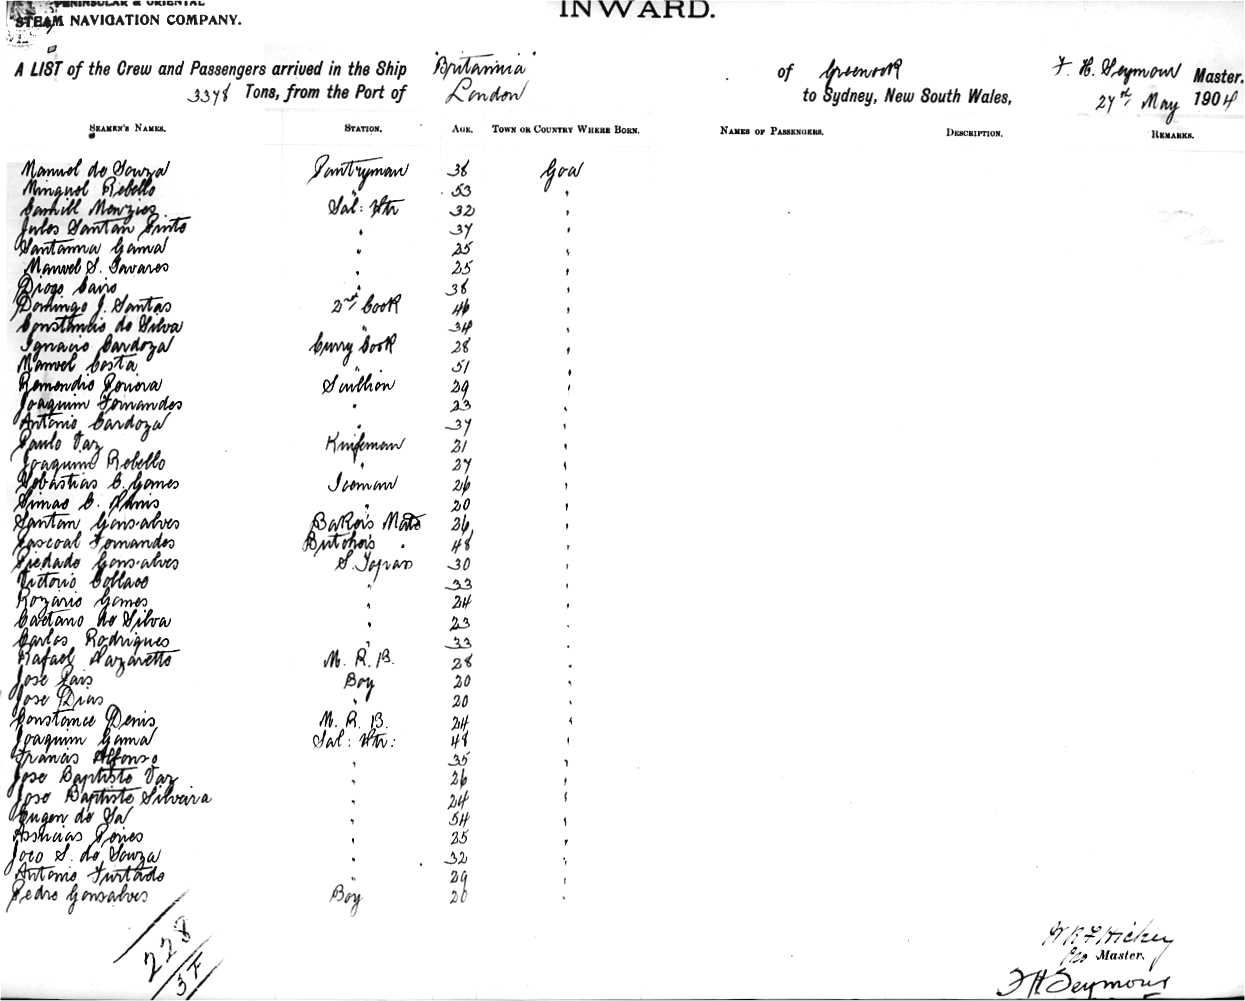 PENINSULAR & ORIENTAL
STEAM NAVIGATION COMPANY.
INWARD.
A LIST of the Crew and Passengers arrived in the Ship "Britannia" of Greenock F. H. Seymour Master.
3378 Tons, from the Port of London to Sydney, New South Wales, 27th May 1904
SEAMEN'S NAMES. STATION. AGE. TOWN OR COUNTRY WHERE BORN. NAMES OF PASSENGERS. DESCRIPTION. REMARKS.
Manuel de Souza Pantryman 38 Goa
Minguel Rebello " 53 "
Menzies Sal: Wtr 32 "
Jules Santan Pinto " 37 "
Santanna Gama " 25 "
Manuel S. Tavares " 25 "
Diogo " 38 "
Domingo J. Santas 2nd Cook 46 "
Constancio de Silva " 34 "
Ignacio Cardoza Curry Cook 28 "
Manuel Costa " 51 "
Remendio Scullion 29 "
Joaquim Fernandes " 23 "
Antonio Cardoza " 37 "
Paulo Vaz Knifeman 21 "
Joaquim Rebello " 27 "
Sebastias C. Gomes Iceman 26 "
Simao C. " 20 "
Santan Gonsalves Baker's Mate 26 "
Pascoal Fernandes Butcher's " 48 "
Piedade Gonsalves S. Topas 30 "
Victorio Collaco " 33 "
Rozario Gomes " 24 "
Caetano de Silva " 23 "
Carlos Rodrigues " 33 "
Rafael Nazaretto M. R. B. 28 "
Jose Pais Boy 20 "
Jose Dias " 20 "
Constance Denis M. R. B. 24 "
Joaquim Gama Sal: Wtr: 48 "
Francis Alfonso " 35 "
Jose Baptisto Vaz " 26 "
Jose Baptiste Silveira " 24 "
Eugen de Sa " 54 "
" 25 "
Joco S. de Souza " 32 "
Antonio Furtado " 29 "
Pedro Gonsalves Boy 20 "
228
37
Hickey
pro Master.
F H Seymour